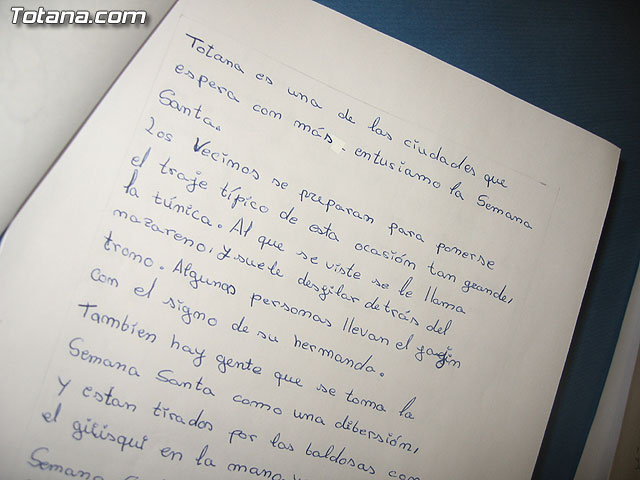 Totana.com
Totana es una de las ciudades que
espera con más entusiamo la Semana
Santa.
Los Vecimos se preparan para ponerse
el traje típico de esta ocasión tan grande,
la túnica. Al que se viste se le llama
nazareno, y suele desfilar detrás del
trono. Algunas personas llevan el fagin
con el signo de su hermanda.
Tambien hay gente que se toma la
Semana Santa como una diberssión,
y estan tirados por las baldosas con
el gilisqui en la mano
Semana
Totana.com